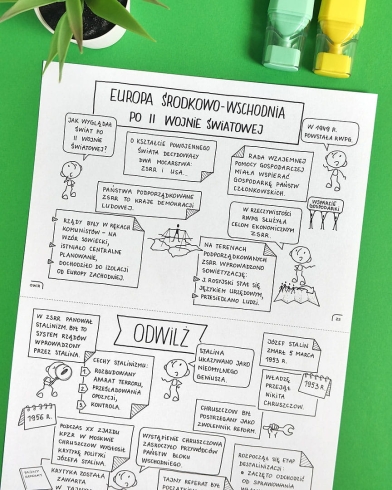 EUROPA ŚRODKOWO-WSCHODNIA
PO II WOJNIE ŚWIATOWEJ
JAK WYGLĄDAŁ
ŚWIAT PO
II WOJNIE
ŚWIATOWEJ?
O KSZTAŁCIE POWOJENNEGO
ŚWIATA DECYDOWAŁY
DWA MOCARSTWA:
ZSRR I USA.
W 1949 R.
POWSTAŁA RWPG.
RADA WZAJEMNEJ
POMOCY GOSPODARCZEJ
MIAŁA WSPIERAĆ
GOSPODARKĘ PAŃSTW
CZŁONKOWSKICH.
PAŃSTWA PODPORZĄDKOWANE
ZSRR TO KRAJE DEMOKRACJI
LUDOWEJ.
W RZECZYWISTOŚCI
RWPG SŁUŻYŁA
CELOM EKONOMICZNYM
ZSRR.
WSPARCIE
GOSPODARKI
RZĄDY BYŁY W RĘKACH
KOMUNISTÓW - NA
WZÓR SOWIECKI,
ISTNIAŁO CENTRALNE
PLANOWANIE,
DOCHODZIŁO DO IZOLACJI
OD EUROPY ZACHODNIEJ.
NA TERENACH
PODPORZĄDKOWANYCH
ZSRR WPROWADZONO
SOWIETYZACJĘ:
J. ROSYJSKI STAŁ SIĘ
JĘZYKIEM URZĘDOWYM,
PRZESIEDLANO LUDZI.
ODWILŻ
W ZSRR PANOWAŁ
STALINIZM. BYŁ TO
SYSTEM RZĄDÓW
WPROWADZONY
PRZEZ STALINA.
CECHY STALINIZMU:
1. ROZBUDOWANY
APARAT TERRORU,
2. PRZEŚLADOWANIA
OPOZYCJI,
3. KONTROLA.
STALINA
UKAZYWANO JAKO
NIEOMYLNEGO
GENIUSZA.
JÓZEF STALIN
ZMARŁ 5 MARCA
1953 R.
WŁADZĘ
PRZEJĄŁ
NIKITA
CHRUSZCZOW.
1953 R.
1956 R.
CHRUSZCZOW BYŁ
POSTRZEGANY JAKO
ZWOLENNIK REFORM.
PODCZAS XX ZJAZDU
KPZR W MOSKWIE
CHRUSZCZOW WYGŁOSIŁ
KRYTYKĘ POLITYKI
JÓZEFA STALINA.
WYSTĄPIENIE CHRUSZCZOWA
ZASKOCZYŁO PRZYWÓDCÓW
PAŃSTW BLOKU
WSCHODNIEGO.
ROZPOCZĄŁ SIĘ ETAP
DESTALINIZACJI
ZACZĘTO ODCHODZIĆ
OD SPRAWOWANIA
KRYTYKA ZOSTAŁA
ZAWARTA
W TAJNYM
TAJNY REFERAT BYŁ